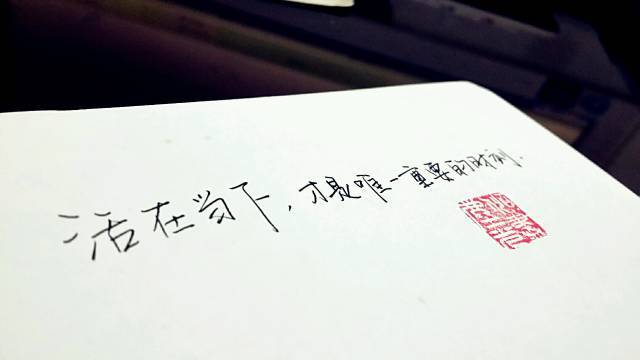 活在当下，才是唯一重要的时刻.